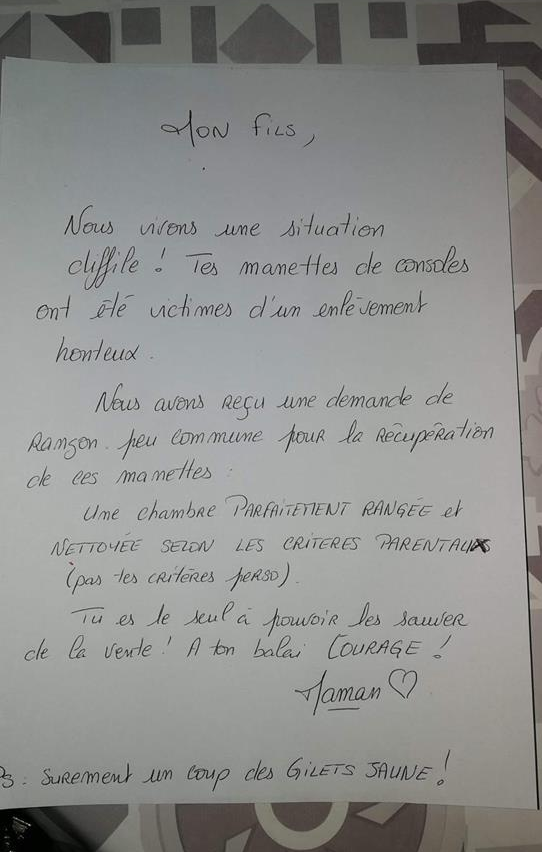 Mon fils,
Nous vivons une situation
diffile ! Tes manettes de consoles
ont été victimes d'un enlèvement
honteux.
Nous avons reçu une demande de
rançon peu commune pour la récupération
de ces manettes :
Une chambre PARFAITEMENT RANGÉE et
NETTOYÉE SELON LES CRITERES PARENTAUX
(pas tes critères perso).
Tu es le seul à pouvoir les sauver
de la vente ! A ton balai COURAGE !
Maman ♡
Ps : Surement un coup des GILETS JAUNE !